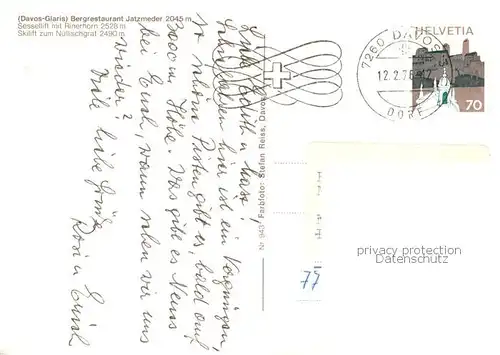 (Davos-Glaris) Bergrestaurant Jatzmeder 2045 m
Sessellift mit Rinerhorn 2528 m
Skilift zum Nüllischgrat 2490 m
Liebe Edith u.
hier ist ein Vergnügen,
so schöne Pisten gibt es, bald auf
3000 m Höhe. Was gibt es Neues
bei Euch, wann sehen wir uns
wieder?
Viele liebe Grüße
Erich
Nr. 943 Farbfoto: Stefan Reiss, Davos
7260 DAVOS
12.2.76
DORF
HELVETIA
70
privacy protection
Datenschutz
77